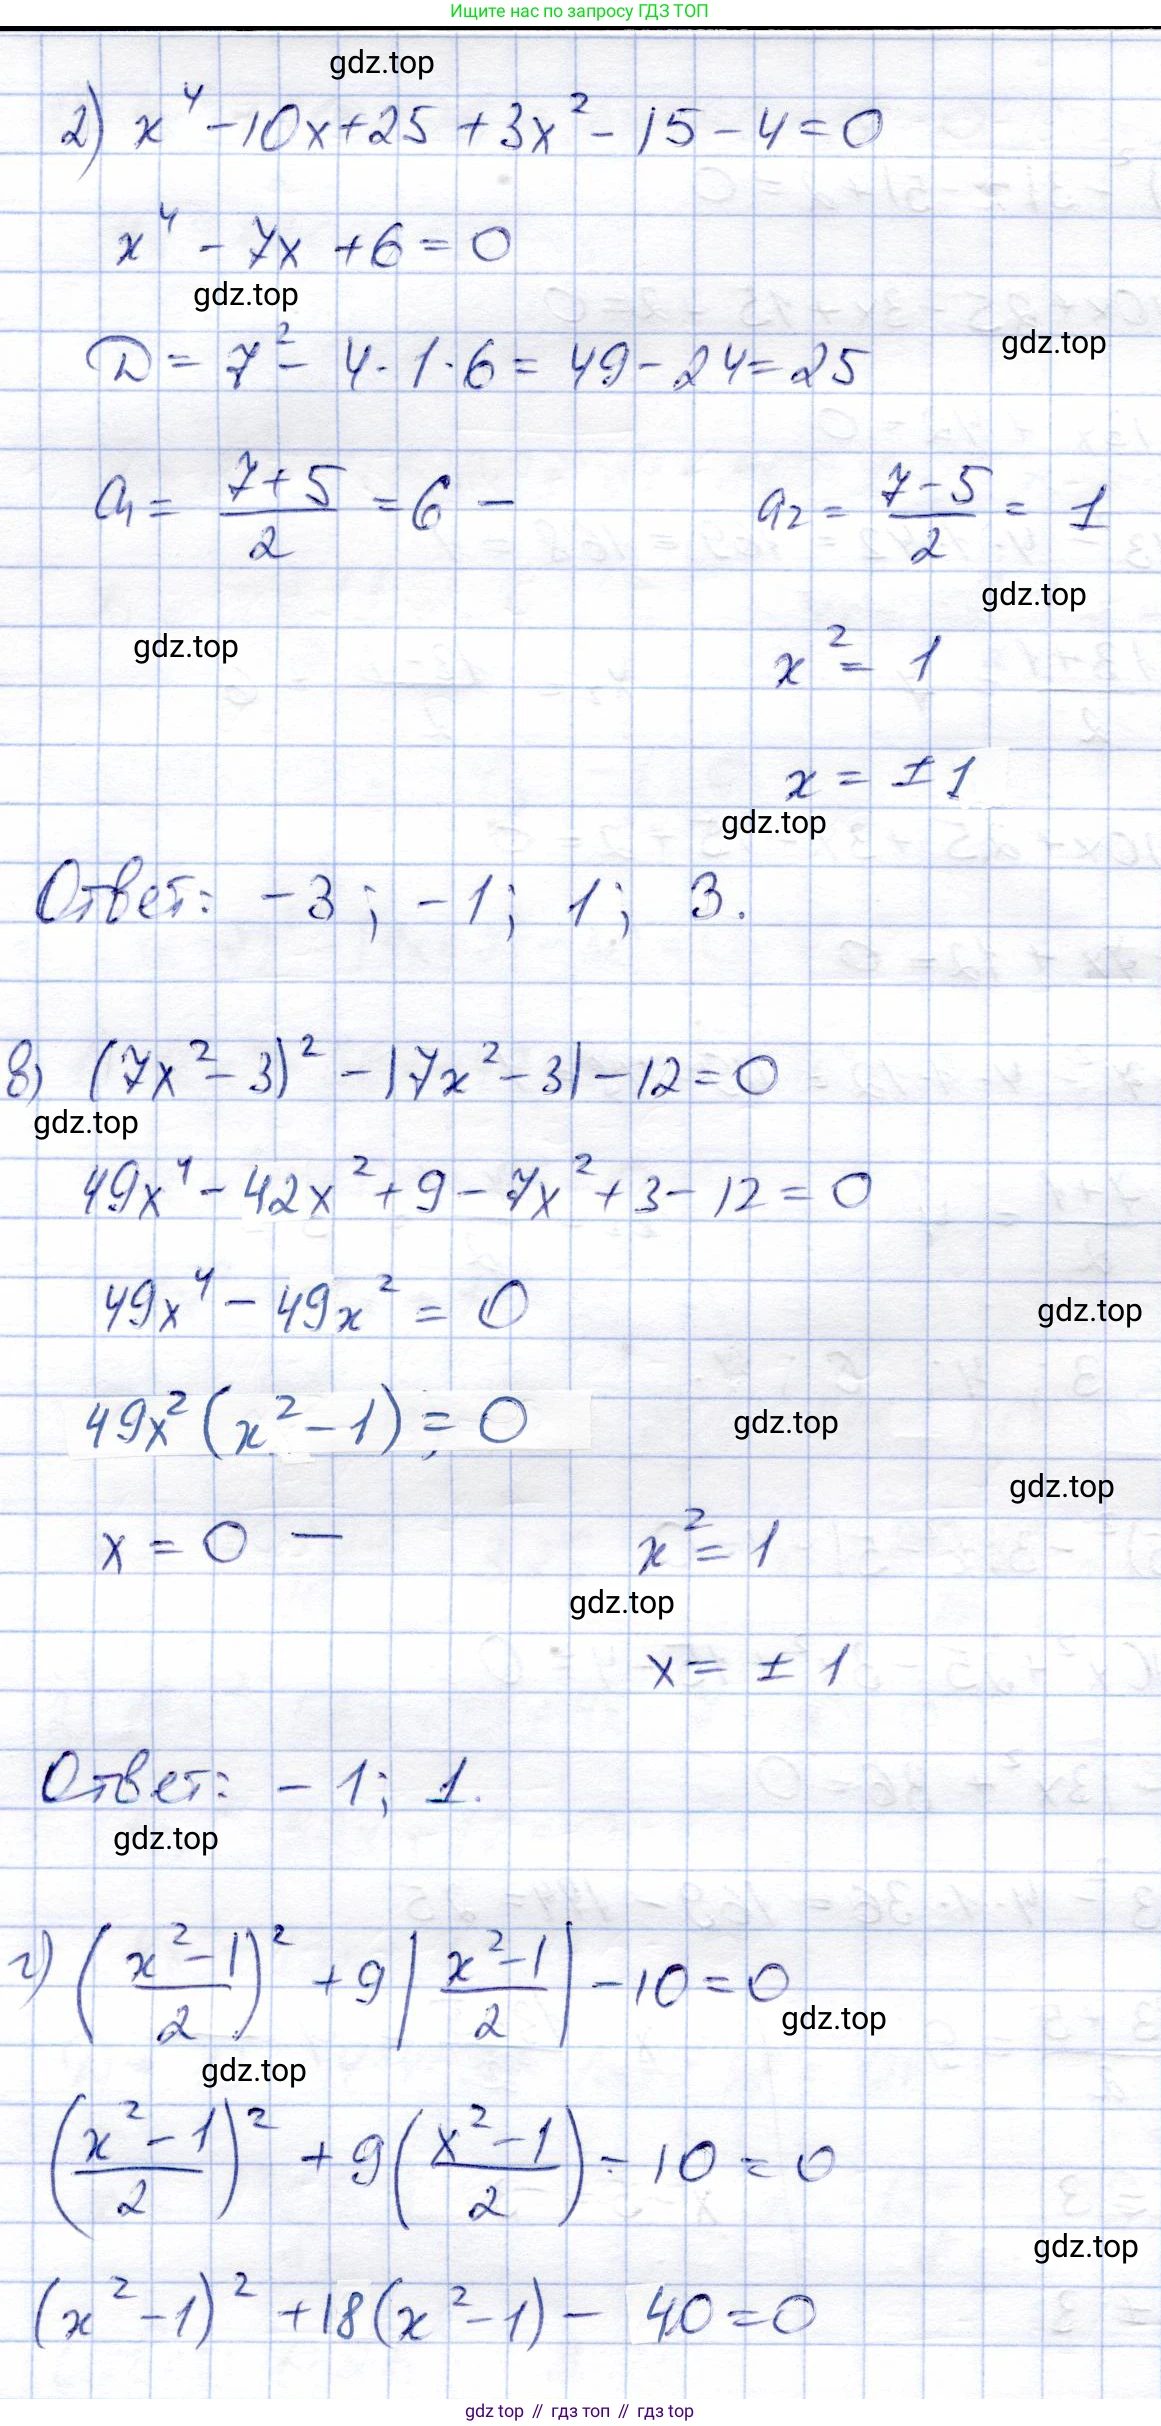 Ищите нас по запросу ГДЗ ТОП
gdz.top
2) x⁴ - 10x + 25 + 3x² - 15 - 4 = 0
x⁴ - 7x + 6 = 0
gdz.top
gdz.top
D = 7² - 4 · 1 · 6 = 49 - 24 = 25
a₁ = (7+5)/2 = 6 – a₂ = (7-5)/2 = 1
gdz.top
gdz.top
x² = 1
x = ±1
gdz.top
Ответ: -3; -1; 1; 3.
в) (7x² - 3)² - |7x² - 3| - 12 = 0
gdz.top
49x⁴ - 42x² + 9 - 7x² + 3 - 12 = 0
49x⁴ - 49x² = 0
gdz.top
49x² (x² - 1) = 0
gdz.top
gdz.top
x = 0 – x² = 1
gdz.top
x = ± 1
Ответ: -1; 1.
gdz.top
г) ((x²-1)/2)² + 9 |(x²-1)/2| - 10 = 0
gdz.top
gdz.top
((x²-1)/2)² + 9 ((x²-1)/2) - 10 = 0
gdz.top
(x² - 1)² + 18 (x² - 1) - 40 = 0
gdz top // гдз топ // гдз top